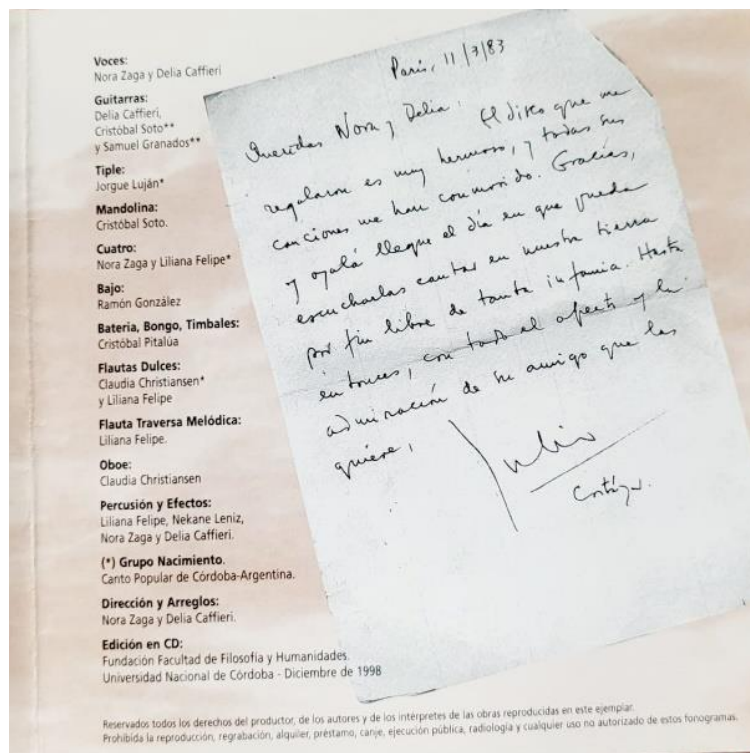 Voces:
Nora Zaga y Delia Caffieri
Guitarras:
Delia Caffieri,
Cristóbal Soto**
y Samuel Granados**
Tiple:
Jorgue Luján*
Mandolina:
Cristóbal Soto.
Cuatro:
Nora Zaga y Liliana Felipe*
Bajo:
Ramón González
Bateria, Bongo, Timbales:
Cristóbal Pitalúa
Flautas Dulces:
Claudia Christiansen*
y Liliana Felipe
Flauta Traversa Melódica:
Liliana Felipe.
Oboe:
Claudia Christiansen
Percusión y Efectos:
Liliana Felipe, Nekane Leniz,
Nora Zaga y Delia Caffieri.
(*) Grupo Nacimiento.
Canto Popular de Córdoba-Argentina.
Dirección y Arreglos:
Nora Zaga y Delia Caffieri.
Edición en CD:
Fundación Facultad de Filosofía y Humanidades.
Universidad Nacional de Córdoba - Diciembre de 1998
París, 11/7/83
Queridas Nora y Delia:
El disco que me
regalaron es muy hermoso, y todas sus
canciones me han conmovido. Gracias,
y ojalá llegue el día en que pueda
escucharlas cantar en nuestra tierra
por fin libre de tanta infamia. Hasta
entonces, con todo el afecto y la
admiración de su amigo que las
quiere,
Julio
Cortázar.
Reservados todos los derechos del productor, de los autores y de los intérpretes de las obras reproducidas en este ejemplar.
Prohibida la reproducción, regrabación, alquiler, préstamo, canje, ejecución pública, radiología y cualquier uso no autorizado de estos fonogramas.